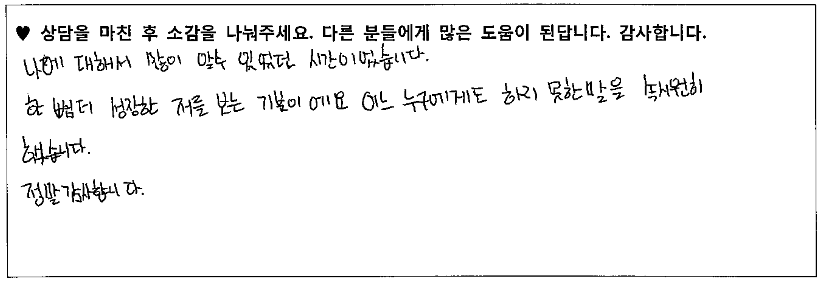 ♥ 상담을 마친 후 소감을 나눠주세요. 다른 분들에게 많은 도움이 된답니다. 감사합니다.
나에 대해서 많이 알수 있었던 시간이었습니다.
한 뼘더 성장한 저를 보는 기분이에요 어느 누구에게도 하지 못한말을 속시원히
했습니다.
정말감사합니다.